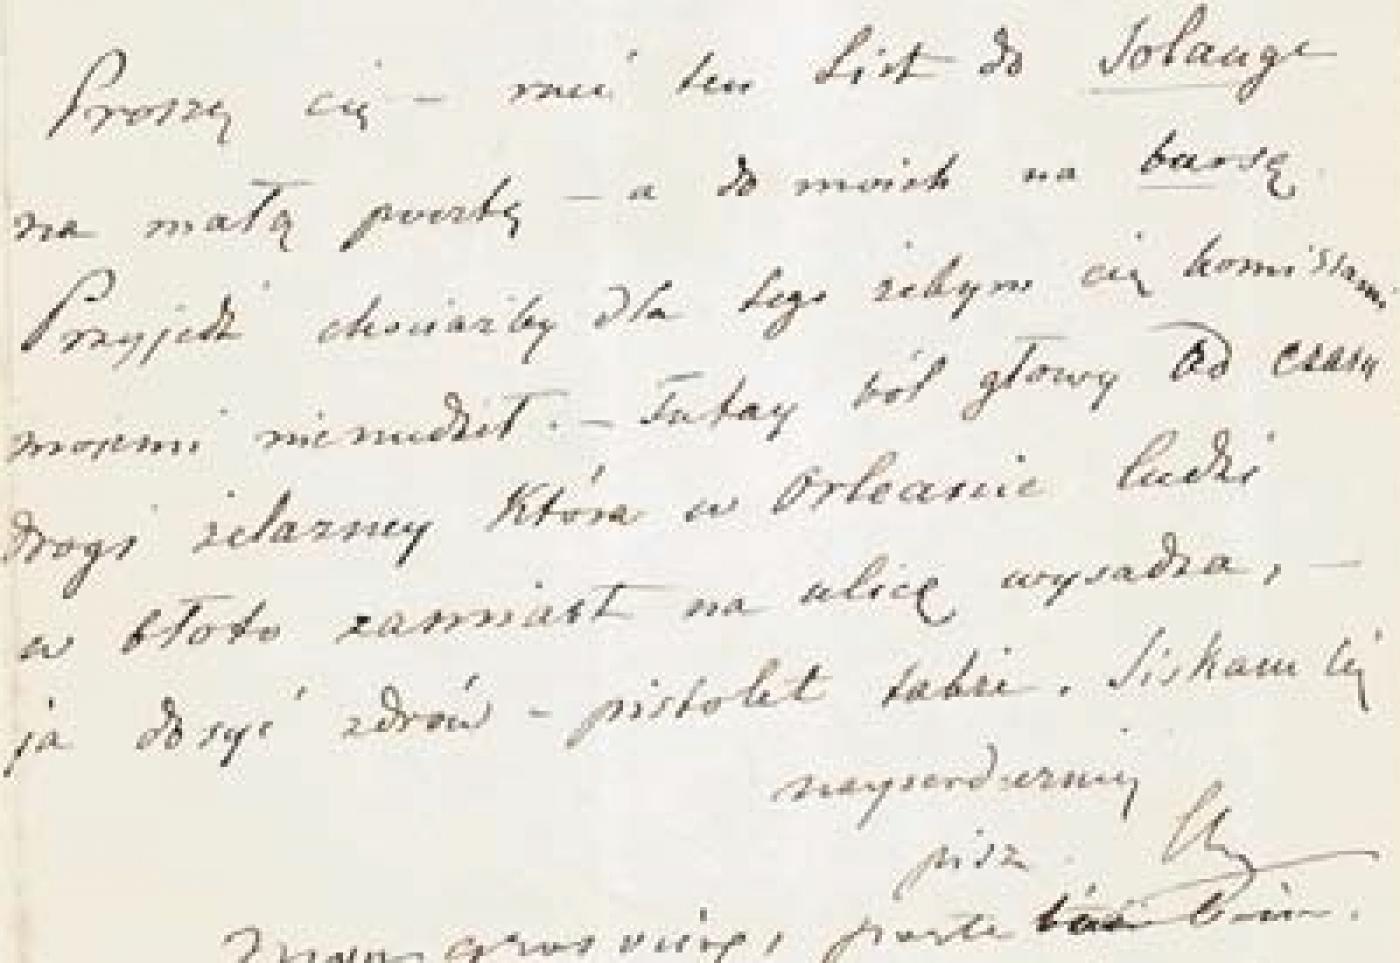 Proszę cię – rzuć ten list do Solange
na małą pocztę – a do moich na bursę.
Przyjedź chociażby dla tego żebym cię komissami
mojemi nienudził. – Tutay ból głowy od czasu
drogi żelazney która w Orleanie ludzi
w błoto zamiast na ulicę wysadza, –
ja dosyć zdrów – pistolet także. Siskam Cię
nayserdeczniej
pisz Ch